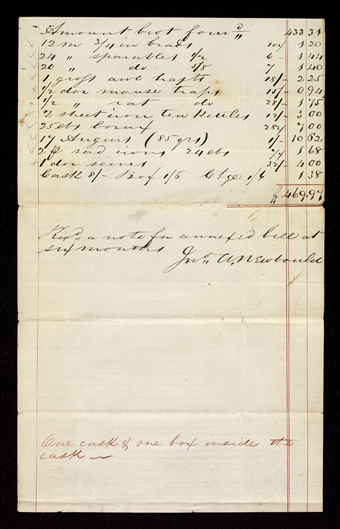 Amount brot forwd 433 31
12 m 3/4 in brads 10/ 1 20
24 " sparables 1/2 6/ 1 44
20 " do 7/ 1 40
1 gross awl hafts 18/ 2 25
1/2 doz mouse traps 15/ 0 94
1/2 " rat do 28/ 1 75
2 sheet iron tea kettles 12/ 3 00
25 lbs borax 28c 7 00
17 Augurs (85 qrs) 1/- 10 62
2 sad irons 24 lbs 7/ 1 68
1 doz seives 32/ 4 00
Cask 8/- Box 1/6 Ctge 1/6 1 38
$469.97
Recd a note for annexed bill at
six months Jno A. Newbould
One cask & one box inside the
cask